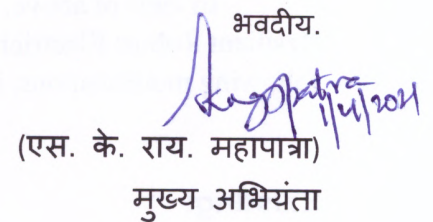 भवदीय.
1/4/2021
(एस. के. राय. महापात्रा)
मुख्य अभियंता